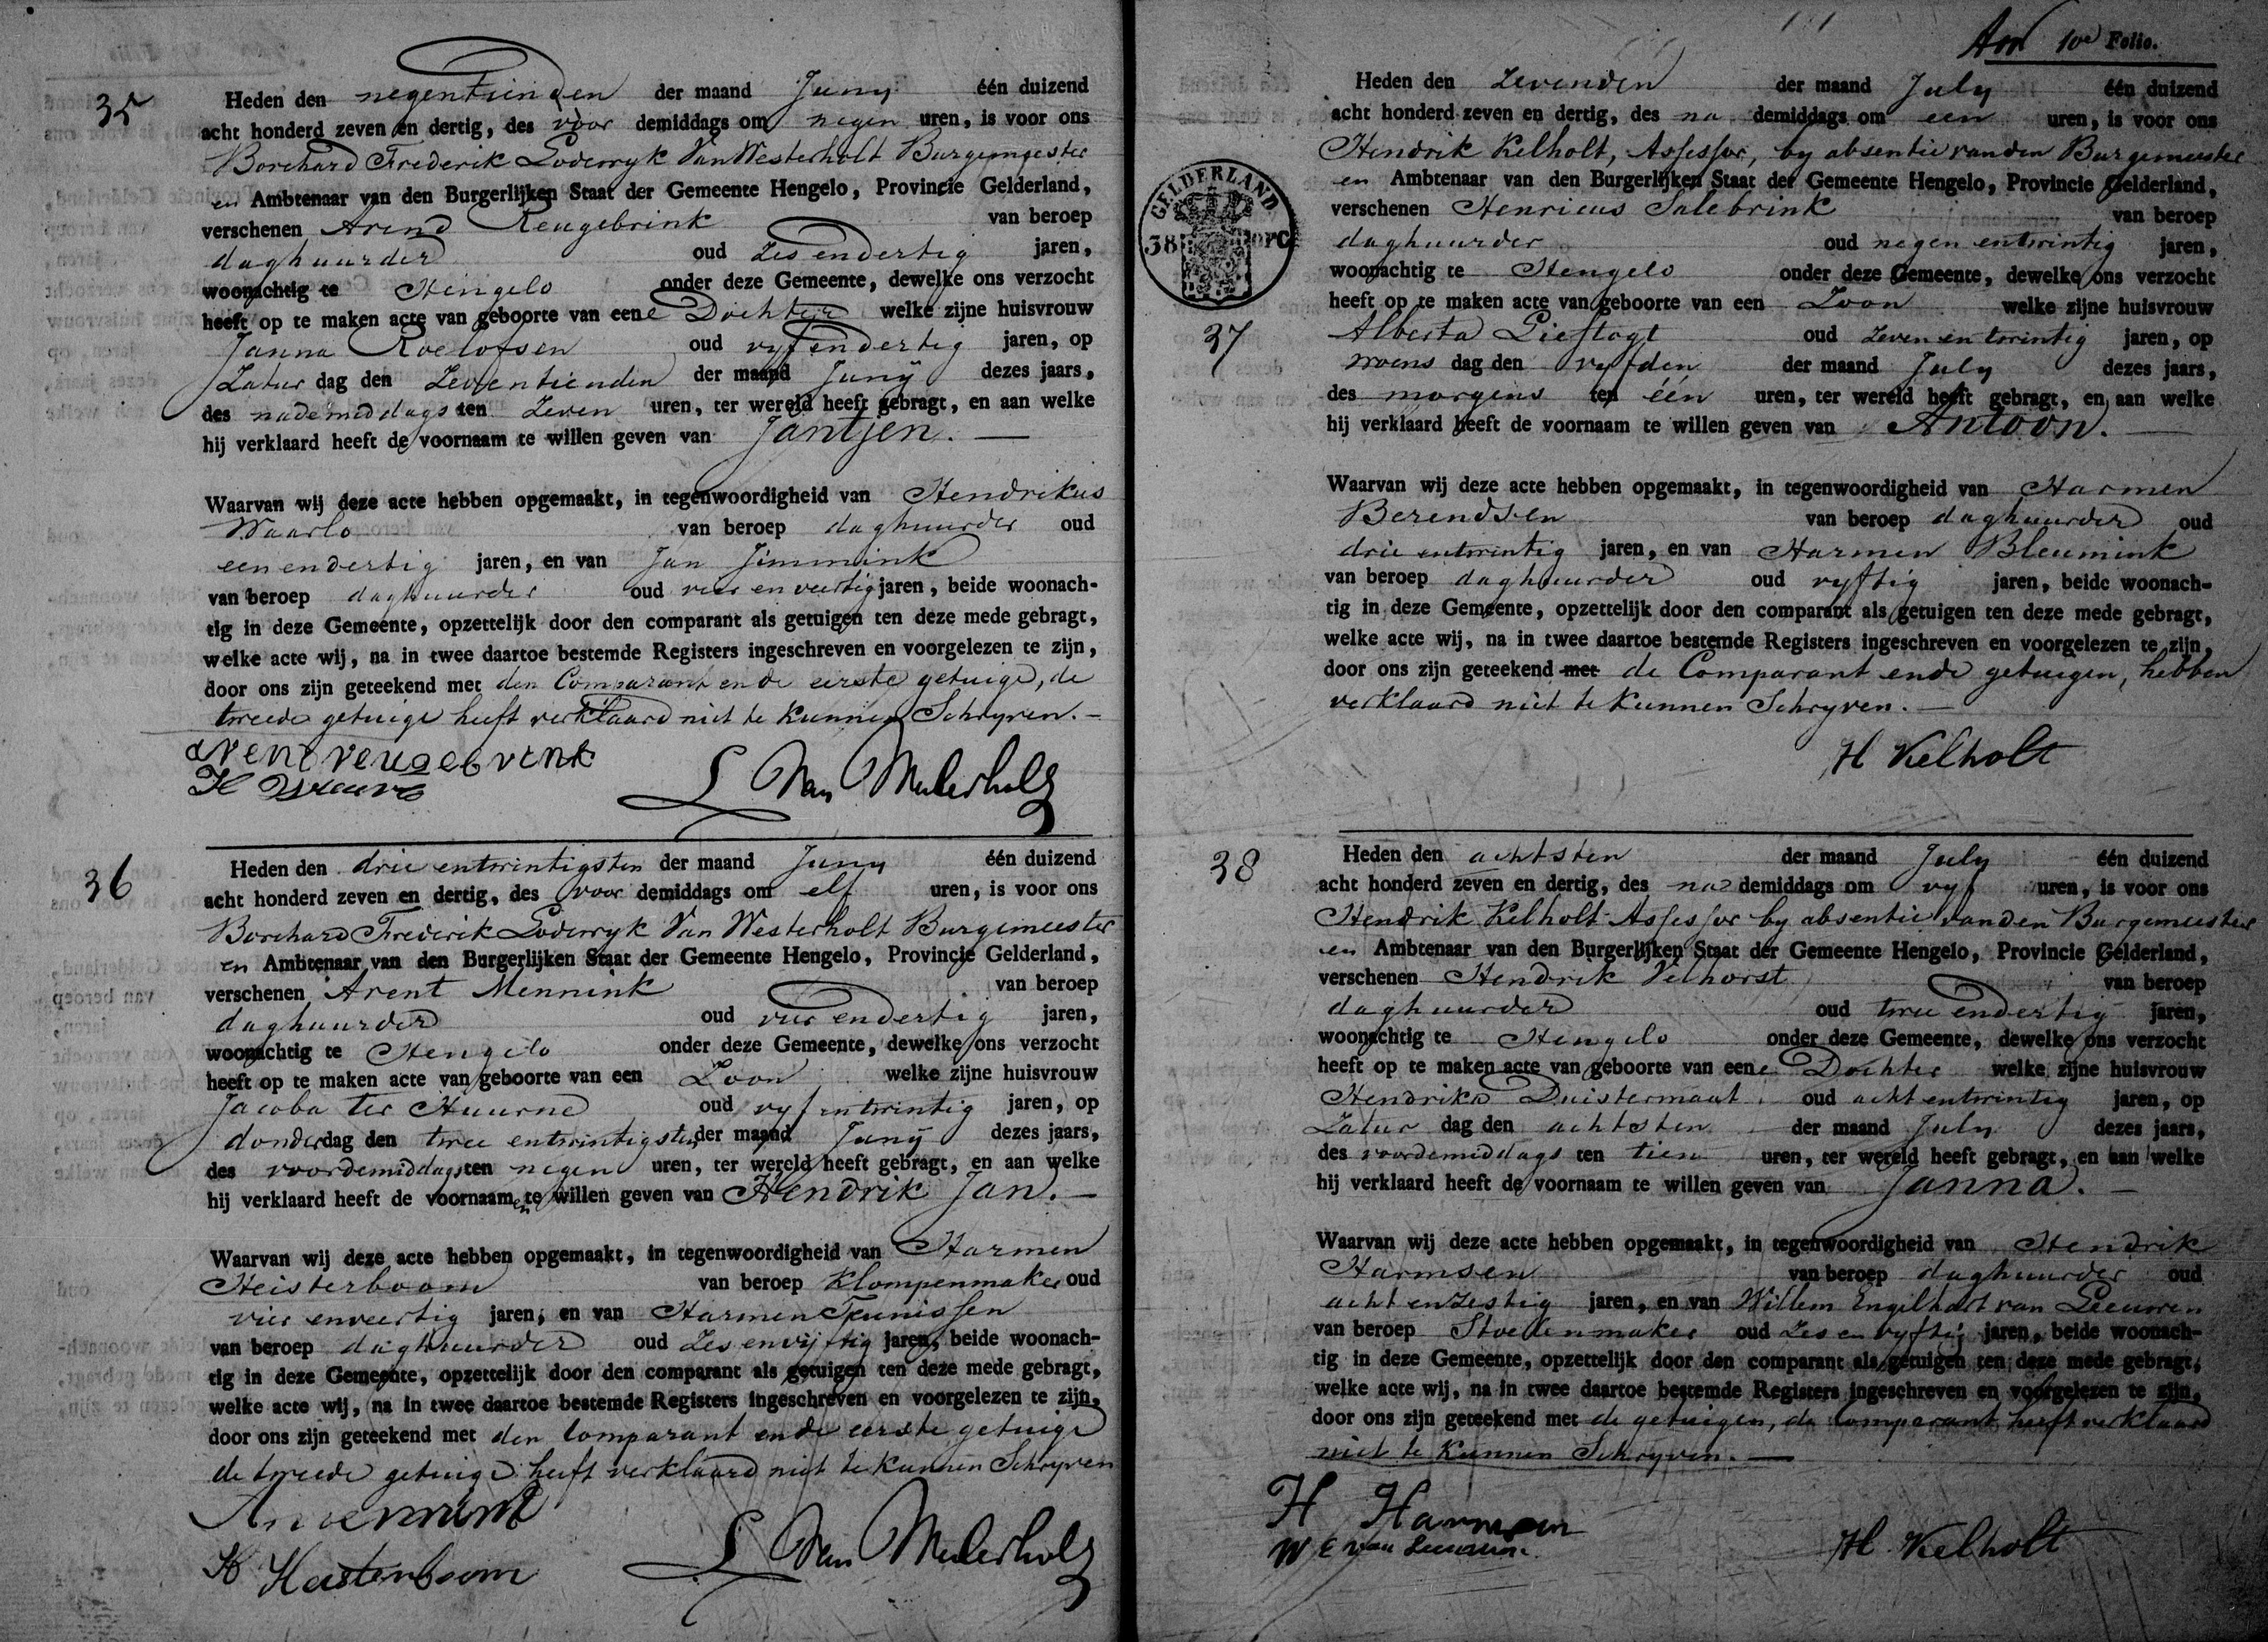 35
Heden den negentienden der maand Juny één duizend
acht honderd zeven en dertig, des voor demiddags om negen uren, is voor ons
Borchard Frederik Lodewyk Van Westerholt Burgemeester
en Ambtenaar van den Burgerlijken Staat der Gemeente Hengelo, Provincie Gelderland,
verschenen Arend Reugebrink van beroep
daghuurder oud zes en dertig jaren,
woonachtig te Hengelo onder deze Gemeente, dewelke ons verzocht
heeft op te maken acte van geboorte van eene Dochter welke zijne huisvrouw
Janna Roelofsen oud vyf en dertig jaren, op
Zatur dag den zeventienden der maand Juny dezes jaars,
des nademiddags ten zeven uren, ter wereld heeft gebragt, en aan welke
hij verklaard heeft de voornaam te willen geven van Jantjen.
Waarvan wij deze acte hebben opgemaakt, in tegenwoordigheid van Hendrikus
Waarlo van beroep daghuurder oud
een en dertig jaren, en van Jan Jimmink
van beroep daghuurder oud vier en veertig jaren, beide woonach-
tig in deze Gemeente, opzettelijk door den comparant als getuigen ten deze mede gebragt,
welke acte wij, na in twee daartoe bestemde Registers ingeschreven en voorgelezen te zijn,
door ons zijn geteekend met den Comparant en de eerste getuige, de
tweede getuige heeft verklaard niet te kunnen Schryven.
arent reugebrink
L Van Westerholt
36
Heden den drie entwintigsten der maand Juny één duizend
acht honderd zeven en dertig, des voor demiddags om elf uren, is voor ons
Borchard Frederik Lodewyk Van Westerholt Burgemeester
en Ambtenaar van den Burgerlijken Staat der Gemeente Hengelo, Provincie Gelderland,
verschenen Arent Mennink van beroep
daghuurder oud vier en dertig jaren,
woonachtig te Hengelo onder deze Gemeente, dewelke ons verzocht
heeft op te maken acte van geboorte van een Zoon welke zijne huisvrouw
Jacoba ter Huurne oud vyf entwintig jaren, op
donderdag den twee entwintigsten der maand Juny dezes jaars,
des voordemiddags ten negen uren, ter wereld heeft gebragt, en aan welke
hij verklaard heeft de voornaamen te willen geven van Hendrik Jan.
Waarvan wij deze acte hebben opgemaakt, in tegenwoordigheid van Harmen
Heisterboom van beroep Klompenmaker oud
vier en veertig jaren, en van Harmen Teunissen
van beroep daghuurder oud zes en vijftig jaren, beide woonach-
tig in deze Gemeente, opzettelijk door den comparant als getuigen ten deze mede gebragt,
welke acte wij, na in twee daartoe bestemde Registers ingeschreven en voorgelezen te zijn,
door ons zijn geteekend met den Comparant en de eerste getuige
de tweede getuige heeft verklaard niet te kunnen Schryven
H Heisterboom
L Van Westerholt
10e Folio.
GELDERLAND
38
37
Heden den zevenden der maand July één duizend
acht honderd zeven en dertig, des na demiddags om een uren, is voor ons
Hendrik Kelholt, Assessor, by absentie van den Burgemeester
en Ambtenaar van den Burgerlijken Staat der Gemeente Hengelo, Provincie Gelderland,
verschenen Henricus Salebrink van beroep
daghuurder oud negen entwintig jaren,
woonachtig te Hengelo onder deze Gemeente, dewelke ons verzocht
heeft op te maken acte van geboorte van een Zoon welke zijne huisvrouw
Alberta Lieftogt oud zeven en twintig jaren, op
woens dag den vyfden der maand July dezes jaars,
des morgens ten één uren, ter wereld heeft gebragt, en aan welke
hij verklaard heeft de voornaam te willen geven van Antoon.
Waarvan wij deze acte hebben opgemaakt, in tegenwoordigheid van Harmen
Berendsen van beroep daghuurder oud
drie entwintig jaren, en van Harmen Bleumink
van beroep daghuurder oud vyftig jaren, beide woonach-
tig in deze Gemeente, opzettelijk door den comparant als getuigen ten deze mede gebragt,
welke acte wij, na in twee daartoe bestemde Registers ingeschreven en voorgelezen te zijn,
door ons zijn geteekend met de Comparant en de getuigen, hebben
verklaard niet te kunnen Schryven.
H Kelholt
38
Heden den achtsten der maand July één duizend
acht honderd zeven en dertig, des na demiddags om vyf uren, is voor ons
Hendrik Kelholt Assessor by absentie van den Burgemeester
en Ambtenaar van den Burgerlijken Staat der Gemeente Hengelo, Provincie Gelderland,
verschenen Hendrik Velhorst van beroep
daghuurder oud twee en dertig jaren,
woonachtig te Hengelo onder deze Gemeente, dewelke ons verzocht
heeft op te maken acte van geboorte van eene Dochter welke zijne huisvrouw
Hendrika Duistermaat oud acht entwintig jaren, op
Zatur dag den achtsten der maand July dezes jaars,
des voordemiddags ten tien uren, ter wereld heeft gebragt, en aan welke
hij verklaard heeft de voornaam te willen geven van Janna.
Waarvan wij deze acte hebben opgemaakt, in tegenwoordigheid van Hendrik
Harmsen van beroep daghuurder oud
acht en zestig jaren, en van Willem Engelhart van Leeuwen
van beroep Stoelenmaker oud zes en vyftig jaren, beide woonach-
tig in deze Gemeente, opzettelijk door den comparant als getuigen ten deze mede gebragt,
welke acte wij, na in twee daartoe bestemde Registers ingeschreven en voorgelezen te zijn,
door ons zijn geteekend met de getuigen, de Comparant heeft verklaard
niet te kunnen Schryven.
H Harmsen
W E van Leeuwen.
H Kelholt